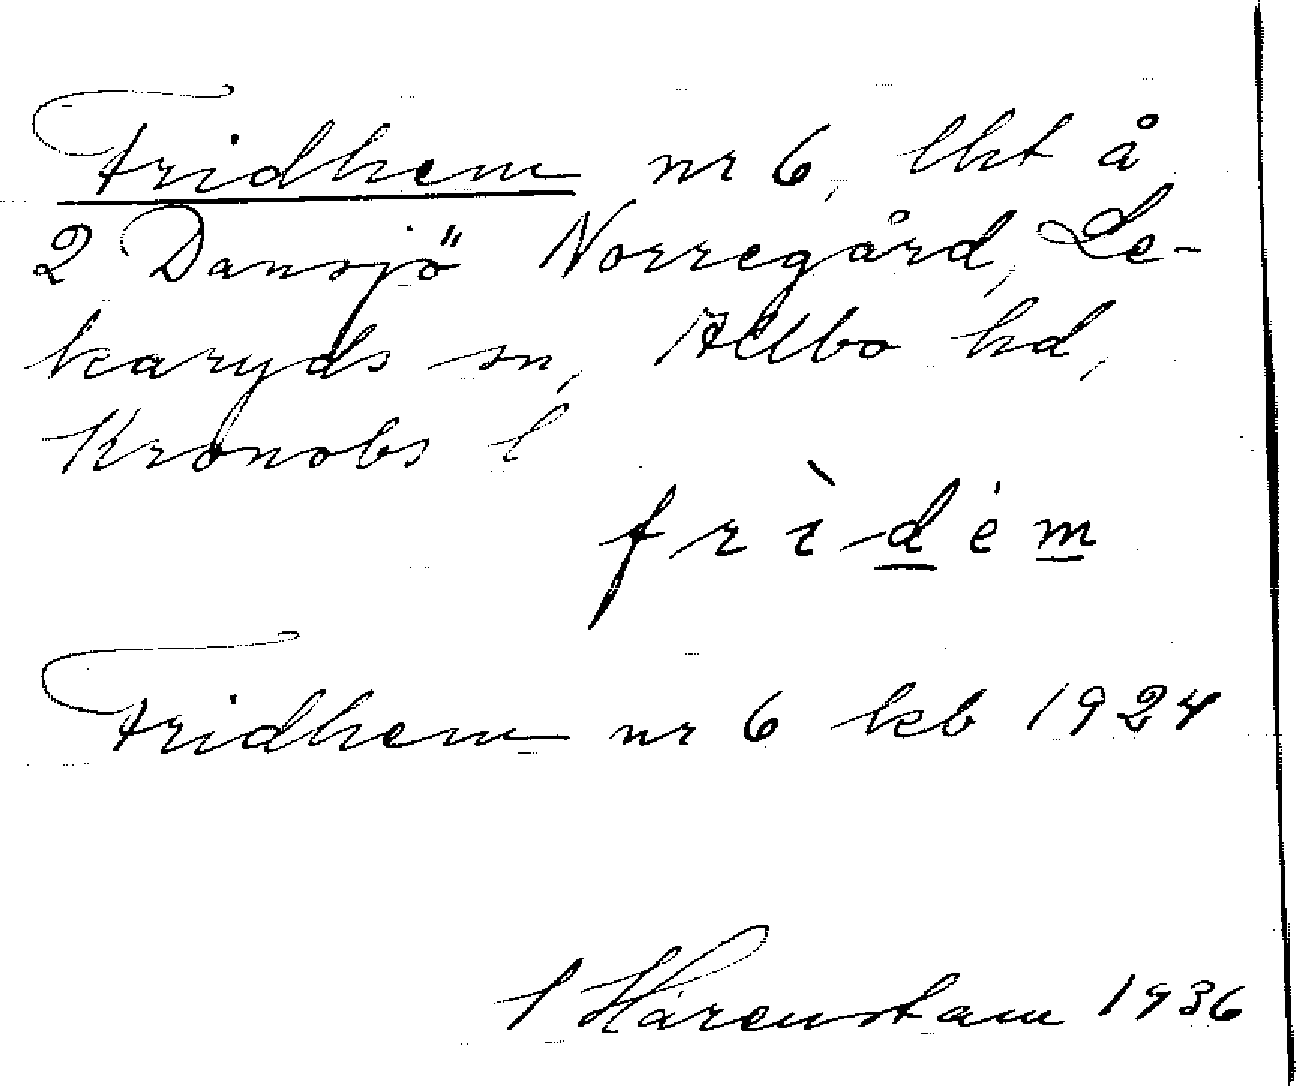 Fridhem nr 6, lht å
2 Dansjö Norregård, Le-
karyds sn, Allbo hd,
Kronobs l
frìdėm
Fridhem nr 6 kb 1924
Hårenstam 1936